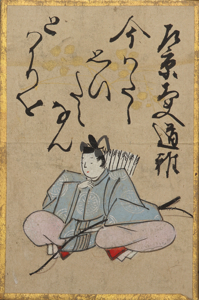 左京大夫道雅
今はたゝ
思ひた
えなん
とはかりを